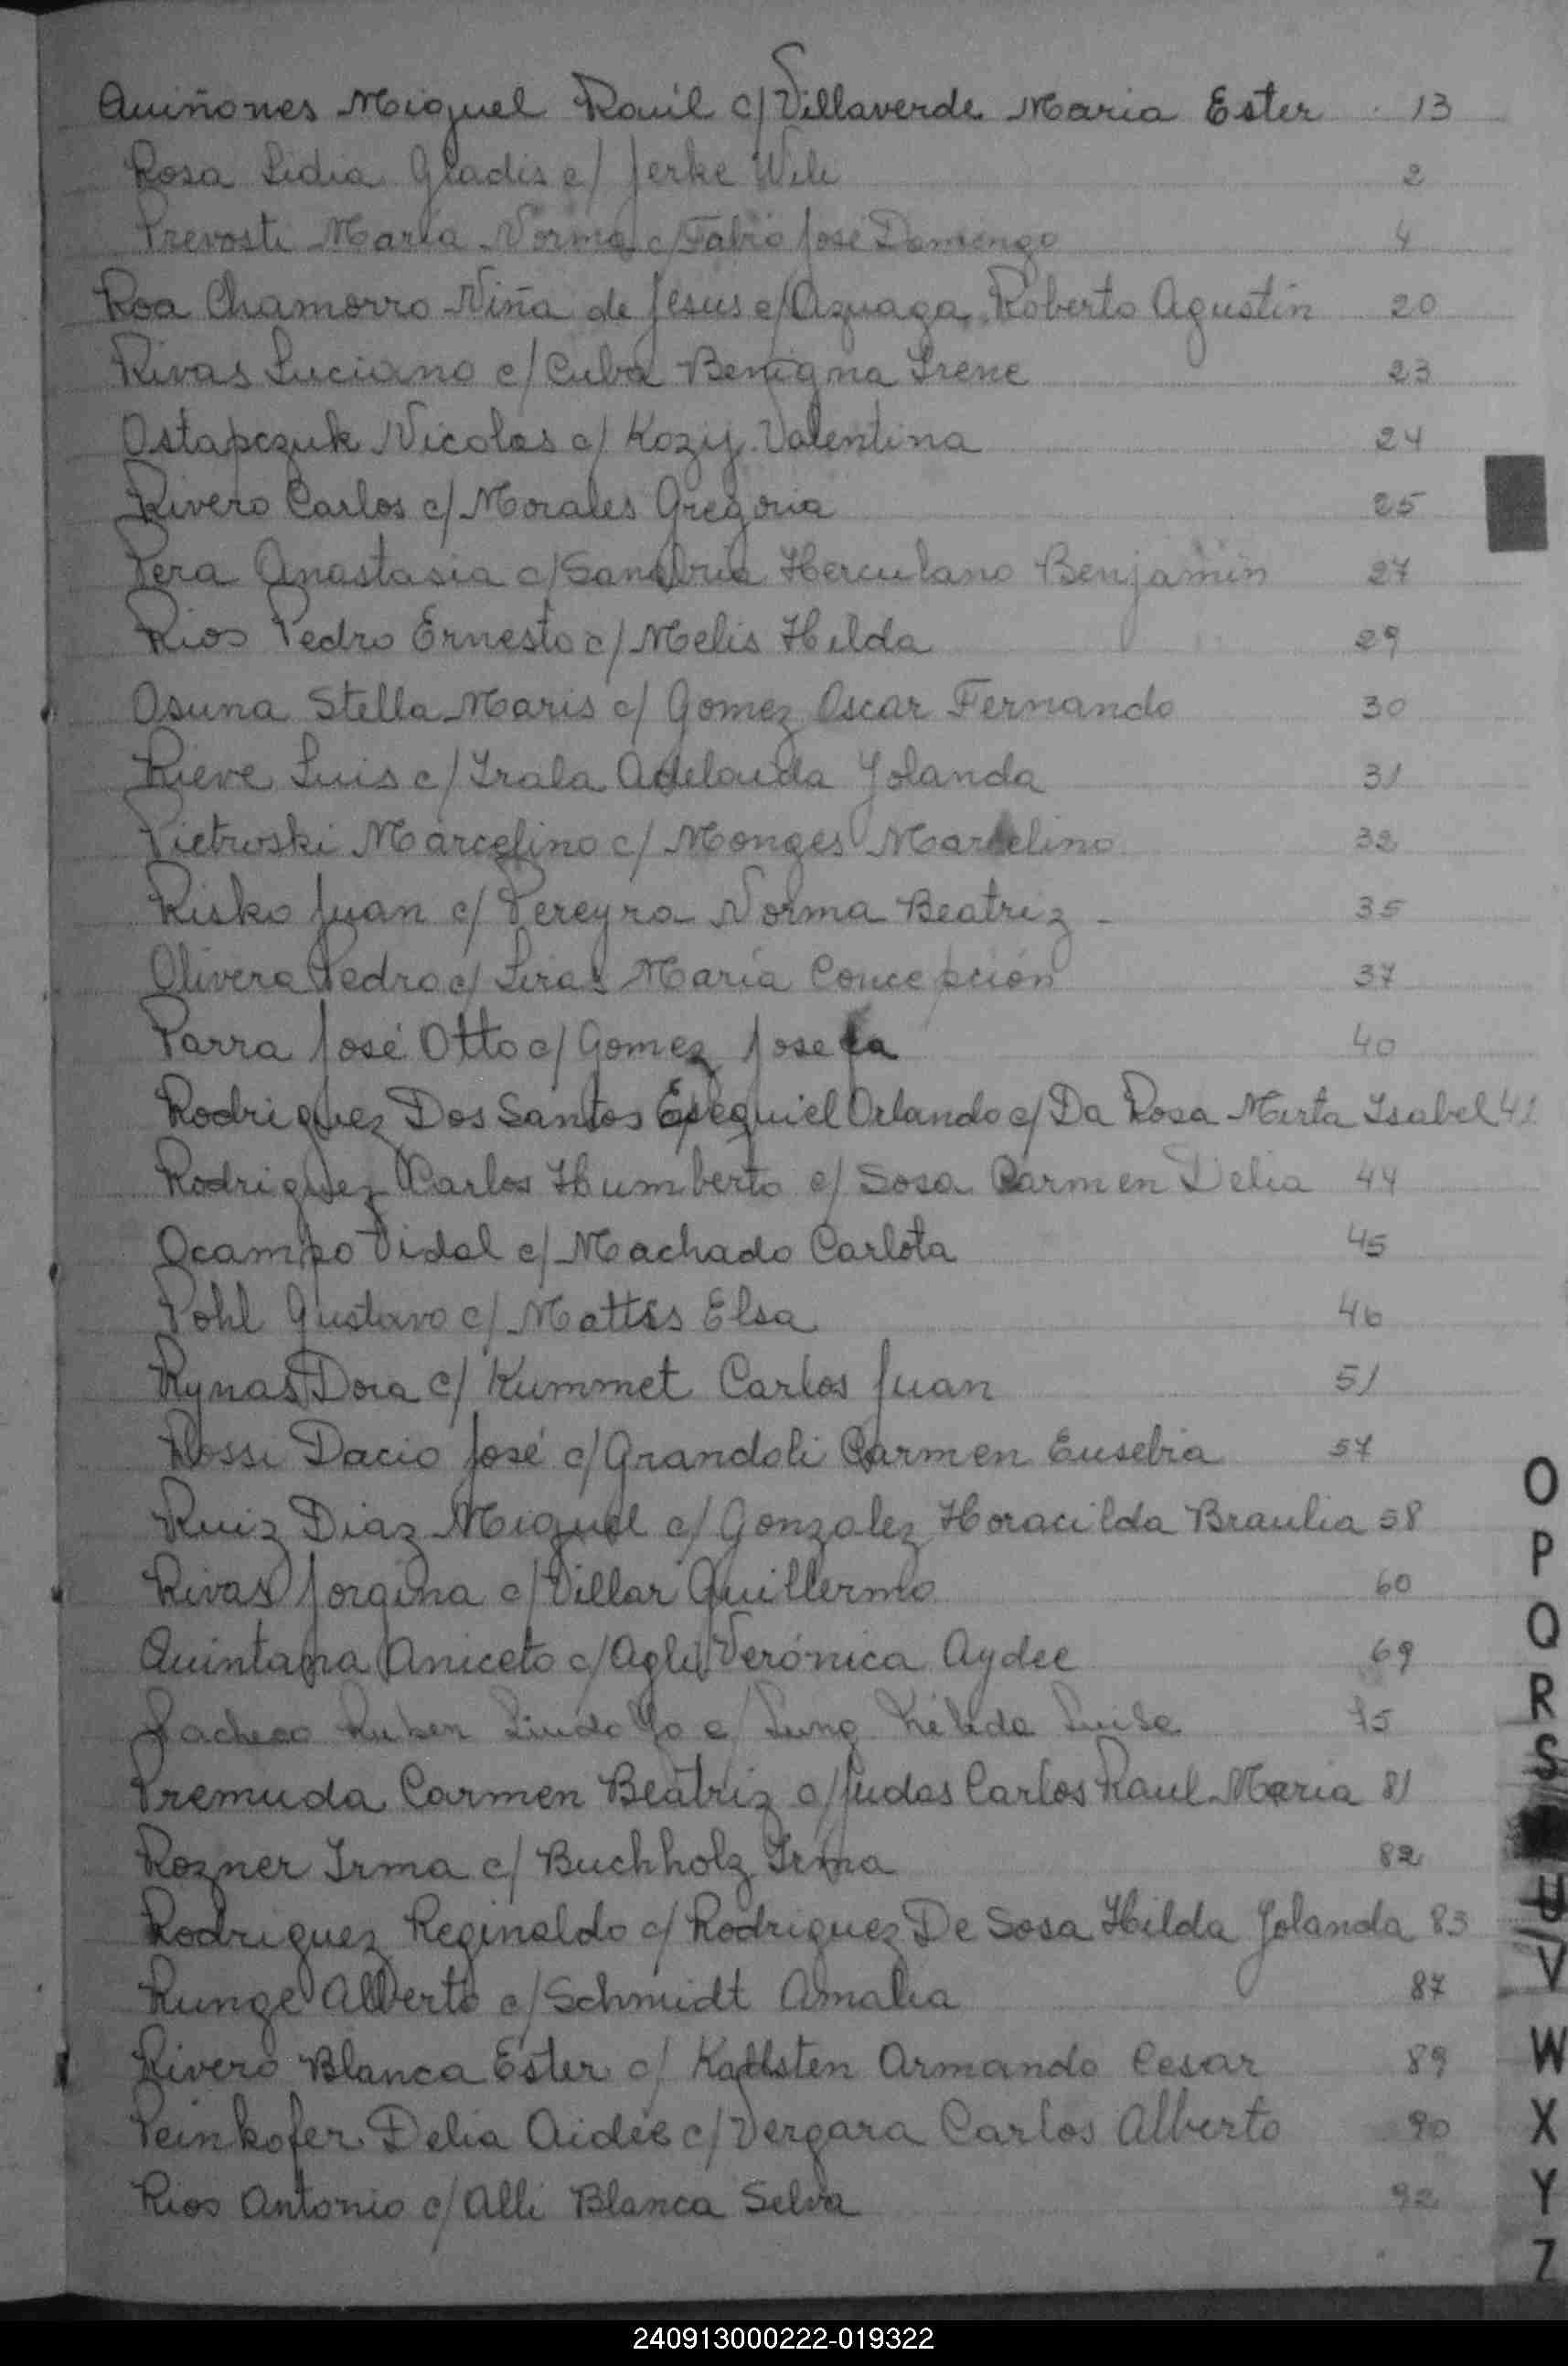 Quiñones Miguel Raúl c/ Villaverde Maria Ester 13
Rosa Lidia Gladis c/ Jerke Wili 2
Prevosti María Norma c/ Fabio José Domingo 4
Roa Chamorro Niña de Jesus c/ Azuaga Roberto Agustín 20
Rivas Luciano c/ Cuba Benigna Irene 23
Ostapczuk Nicolas c/ Koziy Valentina 24
Rivero Carlos c/ Morales Gregoria 25
Pera Anastasia c/ Sanabria Herculano Benjamín 27
Rios Pedro Ernesto c/ Melis Hilda 29
Osuna Stella Maris c/ Gomez Oscar Fernando 30
Rieve Luis c/ Irala Adelaida Yolanda 31
Pietrwski Marcelino c/ Monges Marcelina 32
Risko Juan c/ Pereyra Norma Beatriz - 35
Olivera Pedro c/ María Concepción 37
Parra José Otto c/ Gomez Josefa 40
Rodriguez Dos Santos Esequiel Orlando c/ Da Rosa Mirta Isabel
Rodriguez Carlos Humberto c/ Sosa Carmen Delia 44
Ocampo Vidal c/ Machado Carlota 45
Pohl Gustavo c/ Elsa 46
Rynas Dora c/ Kummet Carlos Juan 51
Rossi Dacio José c/ Grandoli Carmen Eusebia 57
Ruiz Diaz Miguel c/ Gonzalez Horacilda Braulia 58
Rivas Jorgina c/ Villar Guillermo 60
Quintana Aniceto c/ Agli Verónica Aydee 69
Pacheco Ruben Lindolfo c/ Luisa 75
Premuda Carmen Beatriz c/ Judas Carlos Raul Maria 81
Rozner Irma c/ Buchholz Irma 82
Rodriguez Reginaldo c/ Rodriguez De Sosa Hilda Yolanda 83
Runge Alberto c/ Schmidt Amalia 87
Rivero Blanca Ester c/ Kallsten Armando Cesar 89
Peinkofer Delia Aidée c/ Vergara Carlos Alberto 90
Rios Antonio c/ Alli Blanca Selva 92
O
P
Q
R
S
U
V
W
X
Y
Z
240913000222-019322